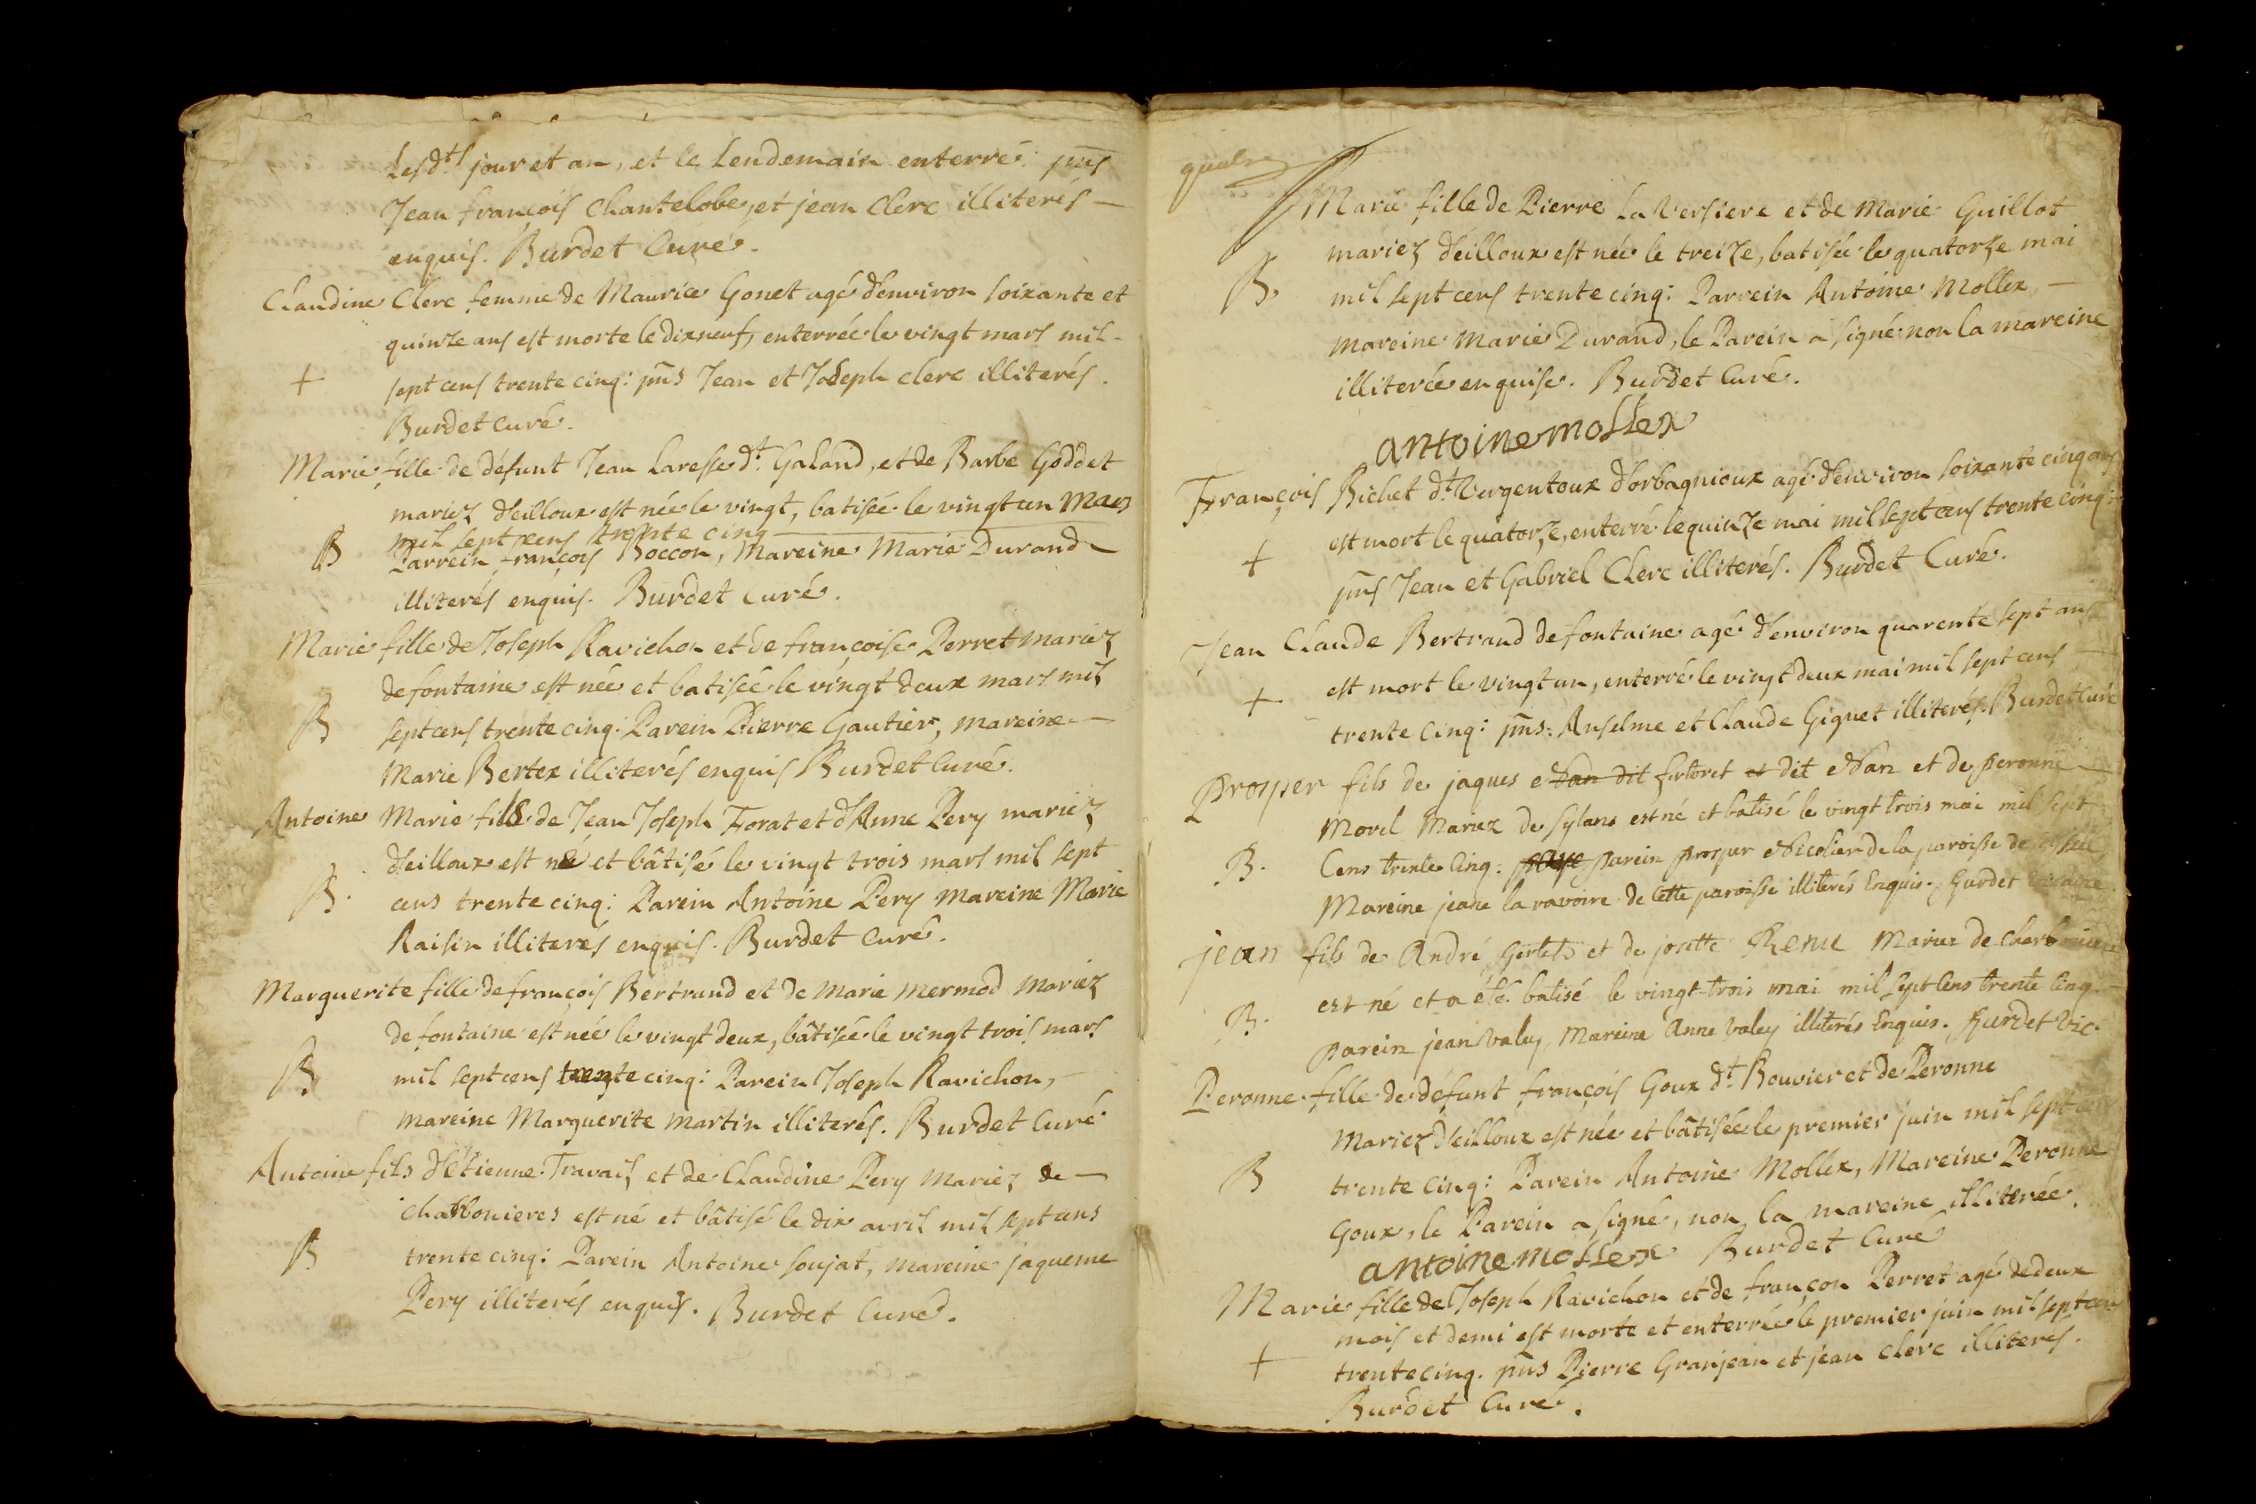 Lesd.ts jour et an, et le Lendemain enterré pñs
Jean françois Chantelobe, et jean Clerc illiterés —
enquis. Burdet Curé.
Claudine Clerc femme de Maurice Gonet agé d'environ soixante et
quinze ans est morte le dixneuf, enterrée le vingt mars mil-
+ sept cens trente cinq: pñs Jean et Joseph clerc illiterés.
Burdet curé.
Marie fille de défunt Jean Laresse d.t Galand, et de Barbe Goddet
mariez d'eilloux est née le vingt, batisée le vingt un Mars
mil sept cens trente cinq
B Parrein françois Boccon, Mareine Marie Durand
illiterés enquis. Burdet curé.
Marie fille de Joseph Ravichon et de françoise Perret mariez
de fontaine est née et batisée le vingt deux mars mil
B sept cens trente cinq: Parein Pierre Gautier, mareine —
Marie Bertex illiterés enquis Burdet Curé.
Antoine Marie fils de Jean Joseph Forat et d'Anne Pery mariez
d'eilloux est né et bâtisé le vingt trois mars mil sept
B. cens trente cinq: Parein Antoine Pery Mareine Marie
Raisin illiterés enquis. Burdet curé.
Marguerite fille de françois Bertrand et de Marie Mermod Mariez
de fontaine est née le vingt deux, bâtisée le vingt trois mars
B mil sept cens trente cinq: Parein Joseph Ravichon, —
Mareine Marguerite Martin illiterés. Burdet Curé
Antoine fils d'Etienne Travail et de Claudine Pery Mariez de —
charbonieres est né et bâtisé le dix avril mil sept cens
B trente cinq: Parein Antoine soujat, mareine jaqueme
Pery illiterés enquis. Burdet Curé.
Marie fille de Pierre La Versiere et de Marie Guillot
mariez d'eilloux est née le treize, batisée le quatorze mai
B. mil sept cens trente cinq: Parrein Antoine Mollex, —
Mareine Marie Durand, le Parein a signé non la mareine
illiterée enquise. Burdet Curé.
antoine mollex
François Bichet d.t Vergentoux d'orbagnioux agé d'environ soixante cinq ans
+ est mort le quatorze, enterré le quinze mai mil sept cens trente cinq:
pñs Jean et Gabriel Clerc illiterés. Burdet Curé.
Jean Claude Bertrand de fontaine agé d'environ quarente sept ans
+ est mort le vingt un, enterré le vingt deux mai mil sept cens —
trente cinq: pñs: Anselme et Claude Giguet illiterés. Burdet Curé
prosper fils de jaques dit et de peronne
Morel Mariez de sylans est né et batisé le vingt trois mai mil sept
B. Cens trente Cinq: parein prosper de la paroisse de
Mareine jeane la ravoire de Cette paroisse illiterés Enquis. Burdet
jean fils de André et de Renu Mariez de
B. est né et a été batisé le vingt-trois mai mil Sept Cens trente Cinq:
parein jean Valey, Mareine Anne Valey illiterés Enquis. Burdet Vic.
Peronne fille de défunt françois Goux d.t Bouvier et de Peronne
Mariez d'eilloux est née et bâtisée le premier juin mil sept cens
B trente cinq: Parein Antoine Mollex, Mareine Peronne
Goux, le Parein a signé, non la mareine illiterée.
antoine mollex Burdet Curé
Marie fille de Joseph Ravichon et de françon Perret agé de deux
mois et demi est morte et enterrée le premier juin mil sept cens
+ trente cinq. pñs Pierre Granjean et jean clerc illiterés.
Burdet Curé.